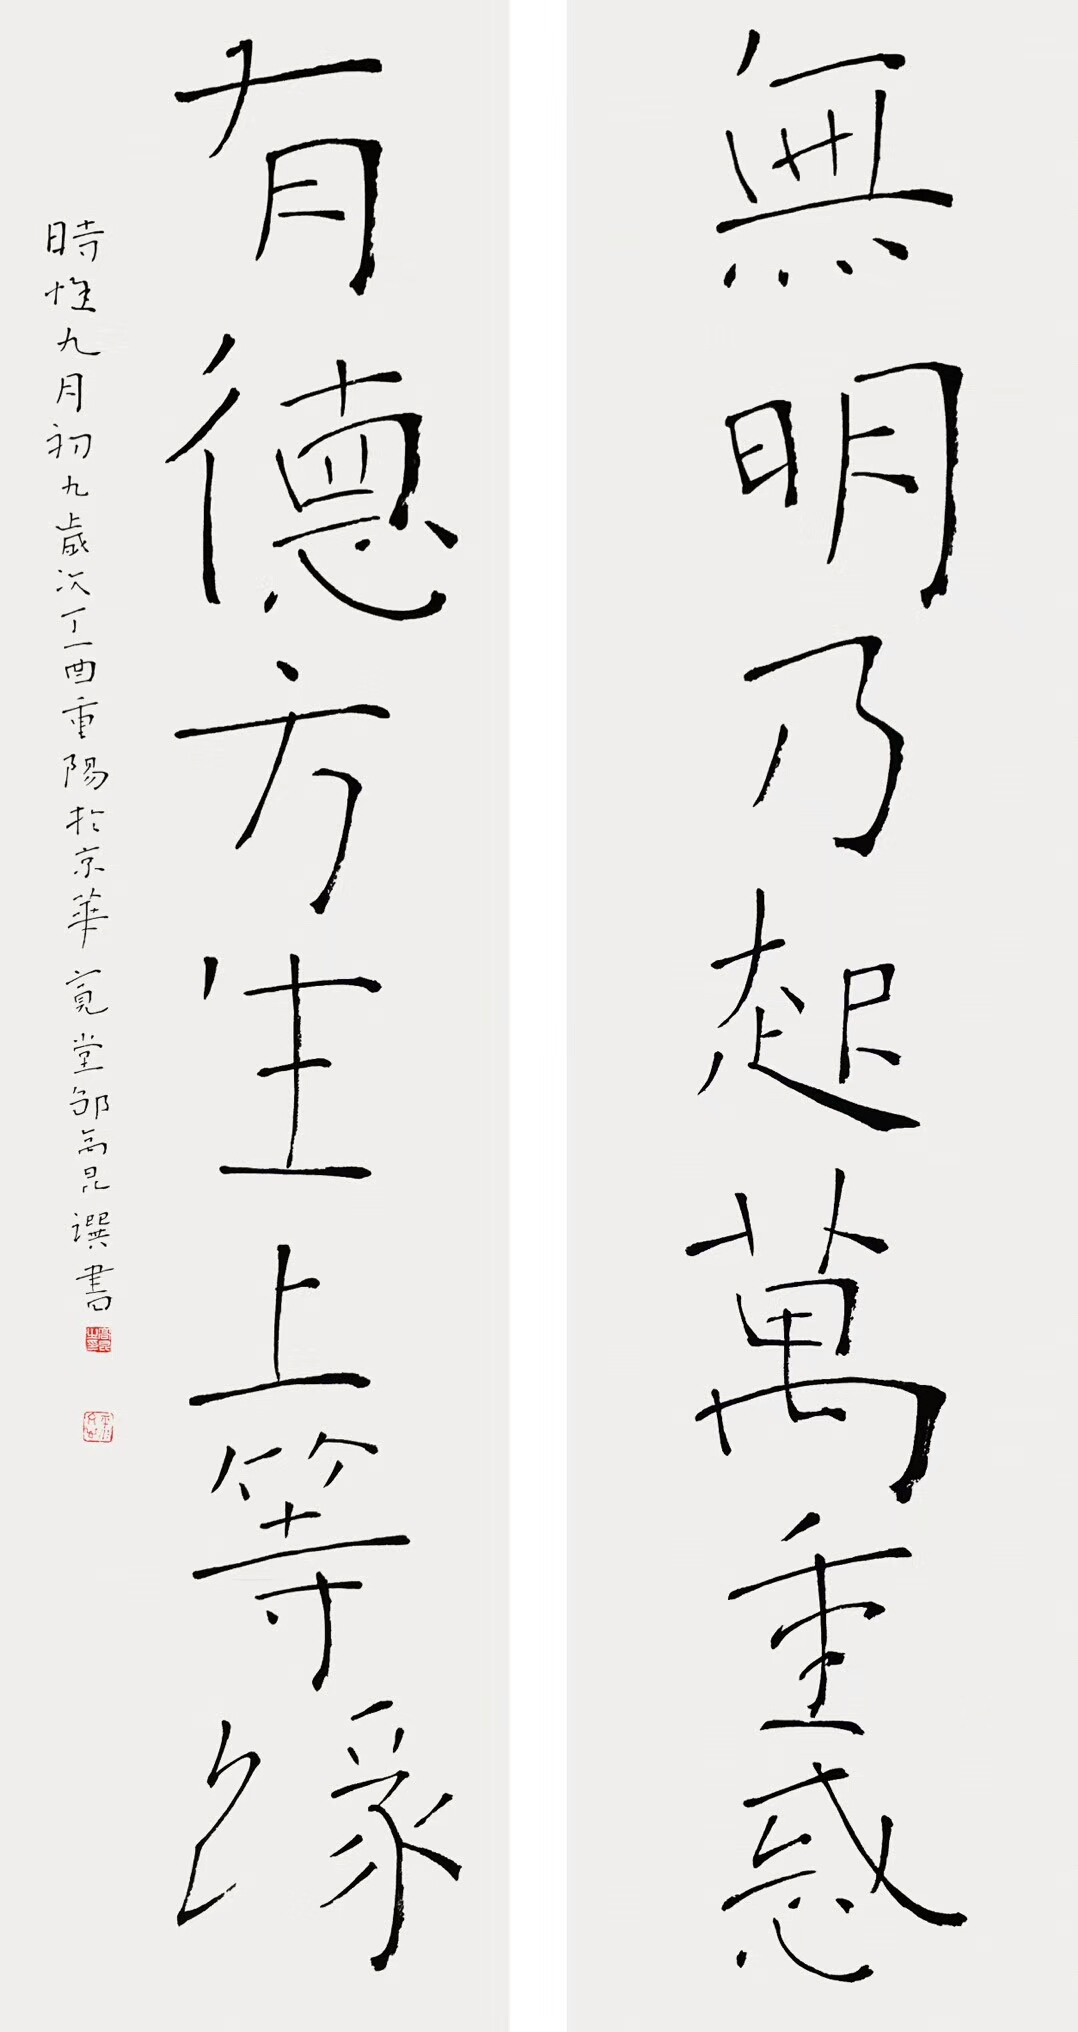 無明乃起萬重惑
有德方生上等緣
時惟九月初九歲次丁酉重陽於京華寬堂邹高昆撰書